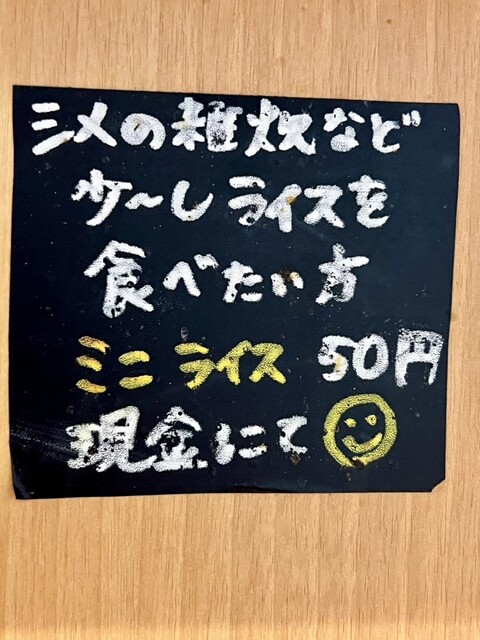 〆の雑炊など
少〜しライスを
食べたい方
ミニライス 50円
現金にて